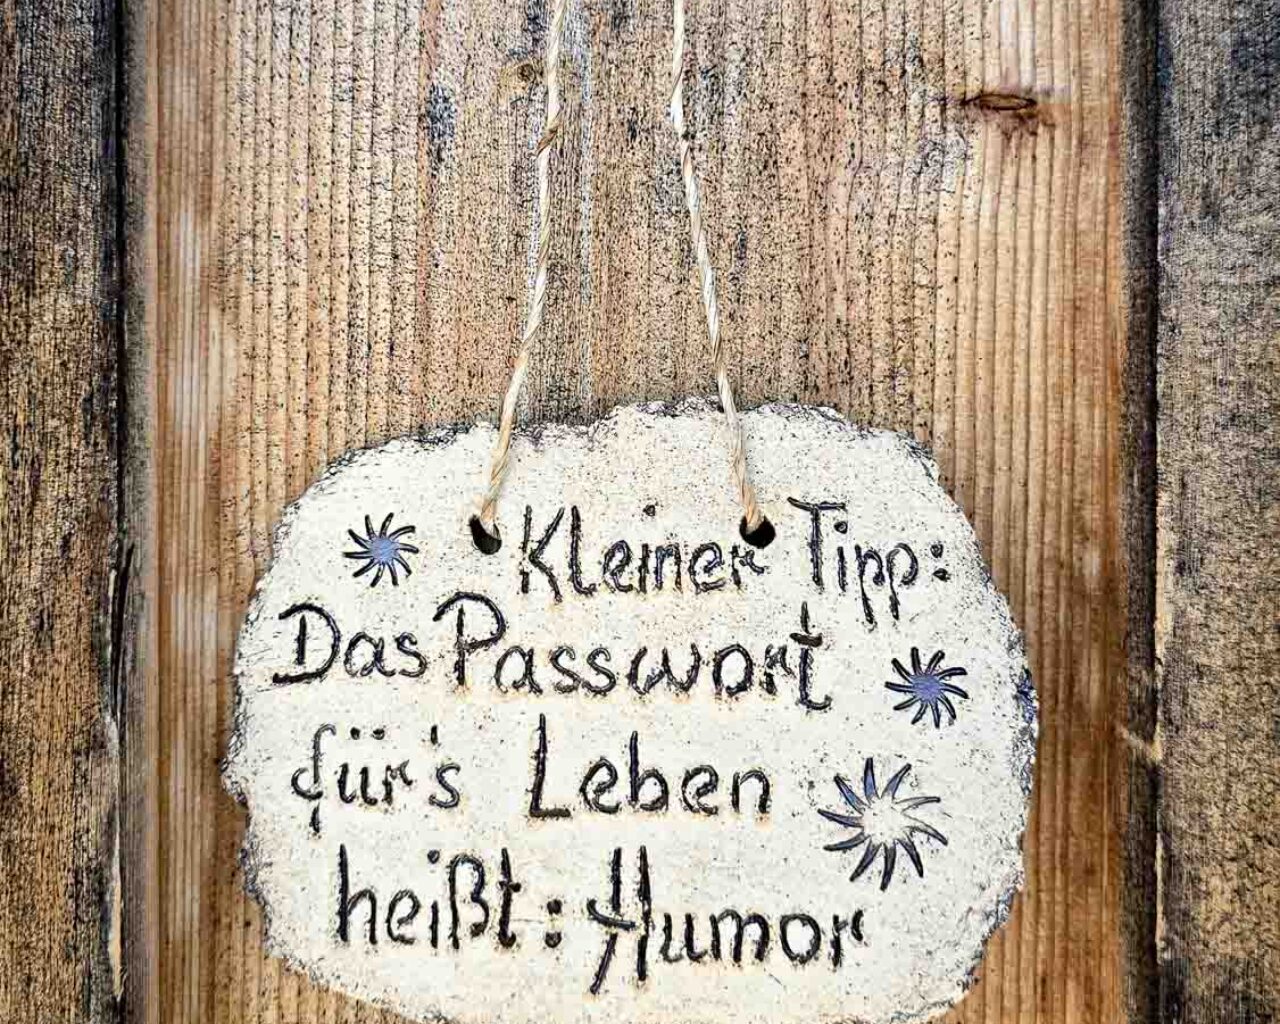 Kleiner Tipp:
Das Passwort
für's Leben
heißt: Humor